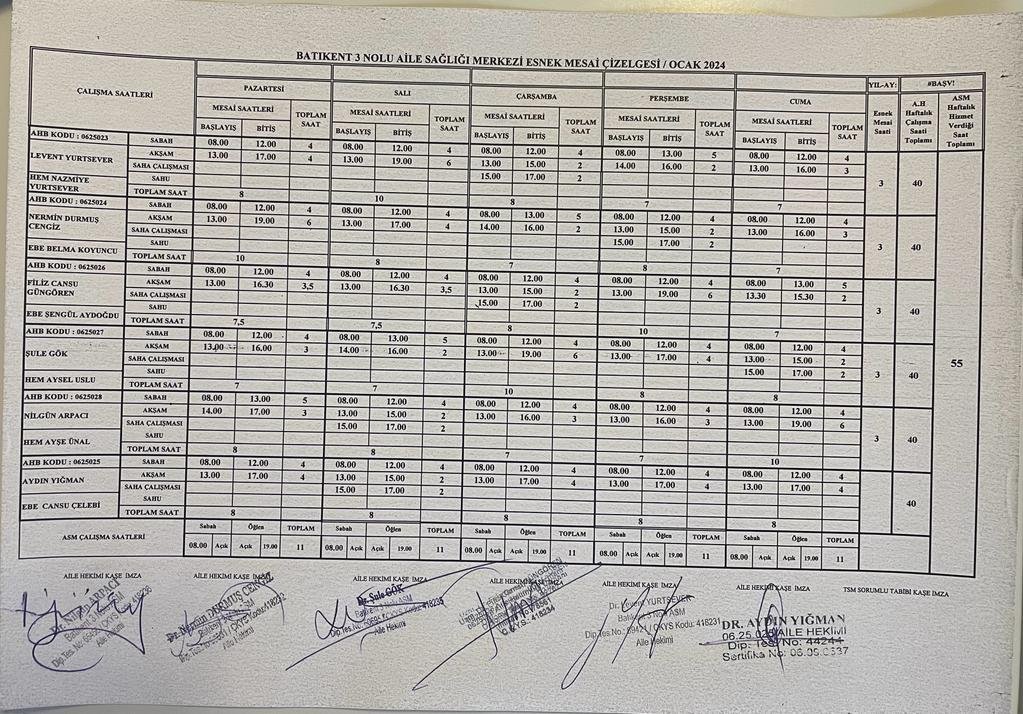 BATIKENT 3 NOLU AİLE SAĞLIĞI MERKEZİ ESNEK MESAİ ÇİZELGESİ / OCAK 2024
YIL-AY: #BAŞV!
ÇALIŞMA SAATLERİ PAZARTESİ SALI ÇARŞAMBA PERŞEMBE CUMA Esnek Mesai Saati A.H Haftalık Çalışma Saati Toplamı ASM Haftalık Hizmet Verdiği Saat Toplamı
MESAİ SAATLERİ TOPLAM SAAT MESAİ SAATLERİ TOPLAM SAAT MESAİ SAATLERİ TOPLAM SAAT MESAİ SAATLERİ TOPLAM SAAT MESAİ SAATLERİ TOPLAM SAAT
BAŞLAYIŞ BİTİŞ BAŞLAYIŞ BİTİŞ BAŞLAYIŞ BİTİŞ BAŞLAYIŞ BİTİŞ BAŞLAYIŞ BİTİŞ
AHB KODU : 0625023 SABAH 08.00 12.00 4 08.00 12.00 4 08.00 12.00 4 08.00 13.00 5 08.00 12.00 4
LEVENT YURTSEVER AKŞAM 13.00 17.00 4 13.00 19.00 6 13.00 15.00 2 14.00 16.00 2 13.00 16.00 3
SAHA ÇALIŞMASI 15.00 17.00 2
HEM NAZMİYE YURTSEVER SAHU 3 40
TOPLAM SAAT 8 10 8 7 7
AHB KODU : 0625024 SABAH 08.00 12.00 4 08.00 12.00 4 08.00 13.00 5 08.00 12.00 4 08.00 12.00 4
NERMİN DURMUŞ CENGİZ AKŞAM 13.00 19.00 6 13.00 17.00 4 14.00 16.00 2 13.00 15.00 2 13.00 16.00 3
SAHA ÇALIŞMASI 15.00 17.00 2
SAHU 3 40
EBE BELMA KOYUNCU TOPLAM SAAT 10 8 7 8 7
AHB KODU : 0625026 SABAH 08.00 12.00 4 08.00 12.00 4 08.00 12.00 4 08.00 12.00 4 08.00 13.00 5
FİLİZ CANSU GÜNGÖREN AKŞAM 13.00 16.30 3,5 13.00 16.30 3,5 13.00 15.00 2 13.00 19.00 6 13.30 15.30 2
SAHA ÇALIŞMASI 15.00 17.00 2
SAHU 3 40
EBE ŞENGÜL AYDOĞDU TOPLAM SAAT 7,5 7,5 8 10 7
AHB KODU : 0625027 SABAH 08.00 12.00 4 08.00 13.00 5 08.00 12.00 4 08.00 12.00 4 08.00 12.00 4
ŞULE GÖK AKŞAM 13.00 16.00 3 14.00 16.00 2 13.00 19.00 6 13.00 17.00 4 13.00 15.00 2
SAHA ÇALIŞMASI 15.00 17.00 2
SAHU 3 40 55
HEM AYSEL USLU TOPLAM SAAT 7 7 10 8 8
AHB KODU : 0625028 SABAH 08.00 13.00 5 08.00 12.00 4 08.00 12.00 4 08.00 12.00 4 08.00 12.00 4
NİLGÜN ARPACI AKŞAM 14.00 17.00 3 13.00 15.00 2 13.00 16.00 3 13.00 16.00 3 13.00 19.00 6
SAHA ÇALIŞMASI 15.00 17.00 2
HEM AYŞE ÜNAL SAHU 3 40
TOPLAM SAAT 8 8 7 7 10
AHB KODU : 0625025 SABAH 08.00 12.00 4 08.00 12.00 4 08.00 12.00 4 08.00 12.00 4 08.00 12.00 4
AYDIN YIĞMAN AKŞAM 13.00 17.00 4 13.00 15.00 2 13.00 17.00 4 13.00 17.00 4 13.00 17.00 4
SAHA ÇALIŞMASI 15.00 17.00 2
EBE CANSU ÇELEBİ SAHU 40
TOPLAM SAAT 8 8 8 8 8
ASM ÇALIŞMA SAATLERİ Sabah Öğlen TOPLAM Sabah Öğlen TOPLAM Sabah Öğlen TOPLAM Sabah Öğlen TOPLAM Sabah Öğlen TOPLAM
08.00 Açık Açık 19.00 11 08.00 Açık Açık 19.00 11 08.00 Açık Açık 19.00 11 08.00 Açık Açık 19.00 11 08.00 Açık Açık 19.00 11
AİLE HEKİMİ KAŞE İMZA AİLE HEKİMİ KAŞE İMZA AİLE HEKİMİ KAŞE İMZA AİLE HEKİMİ KAŞE İMZA AİLE HEKİMİ KAŞE İMZA AİLE HEKİMİ KAŞE İMZA TSM SORUMLU TABİBİ KAŞE İMZA
Dr. Nilgün ARPACI
Dr. Nermin DURMUŞ CENGİZ
Aile Hekimi
Dr. Şule GÖK
Batıkent 3 Nolu ASM
Aile Hekimi
Dr. Levent YURTSEVER
Batıkent 3 Nolu ASM
Aile Hekimi
DR. AYDIN YIĞMAN
06.25.025 AİLE HEKİMİ
Dip. Tes. No: 44244
Sertifika No: 06.09.0337